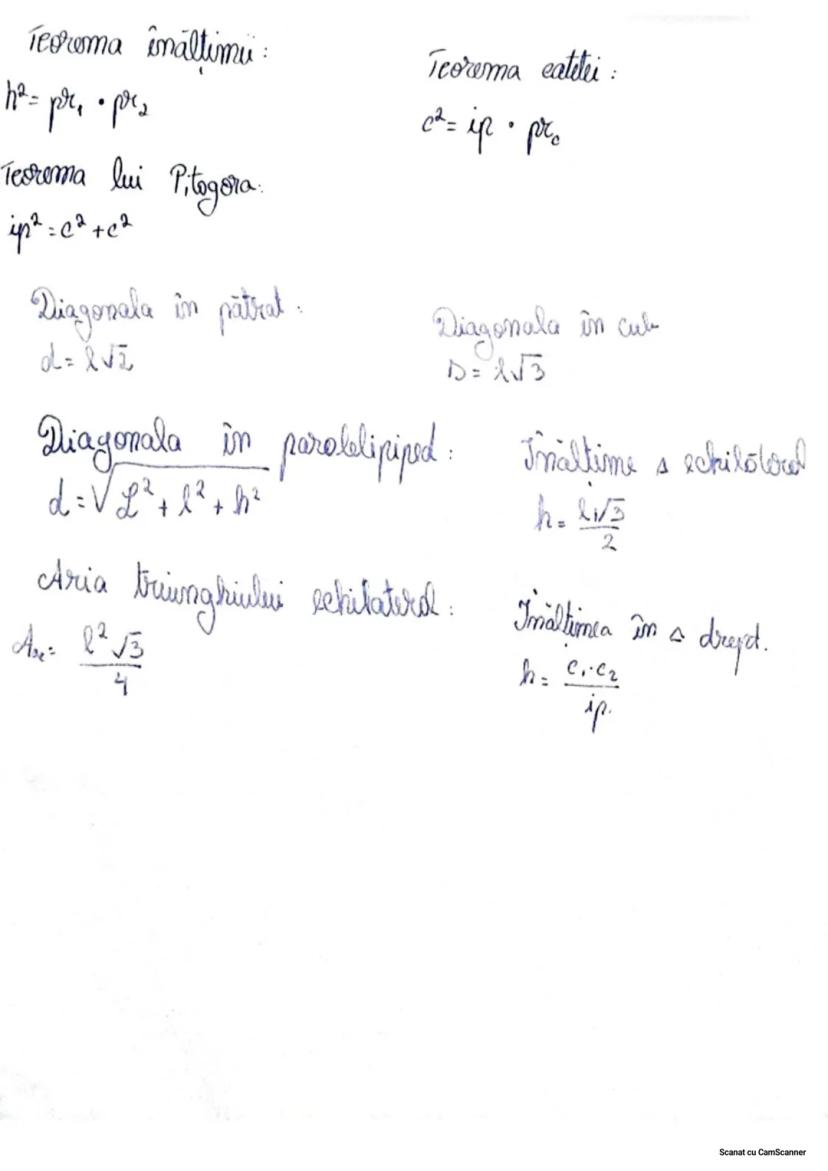 Teorema înălțimii :
h² = pr₁ · pr₂
Teorema catetei :
c² = ip · prc
Teorema lui Pitagora:
ip² = c² + c²
Diagonala în pătrat :
d = l√2
Diagonala în cub
D = l√3
Diagonala în paralelipiped :
d = √L² + l² + h²
Înălțime Δ echilateral
h = l√3
2
Aria triunghiului echilateral :
l²√3
4
Înălțimea în Δ drept.
h = c₁·c₂
ip.
Scanat cu CamScanner